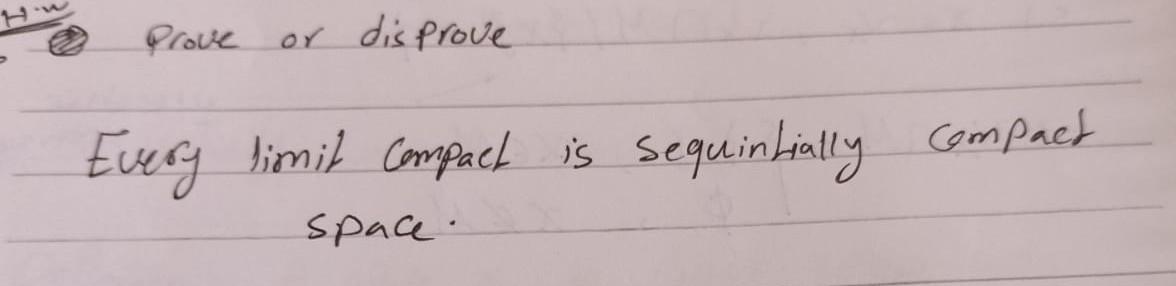 H.W
Prove or disprove
Every limit Compact is sequintially compact
space.